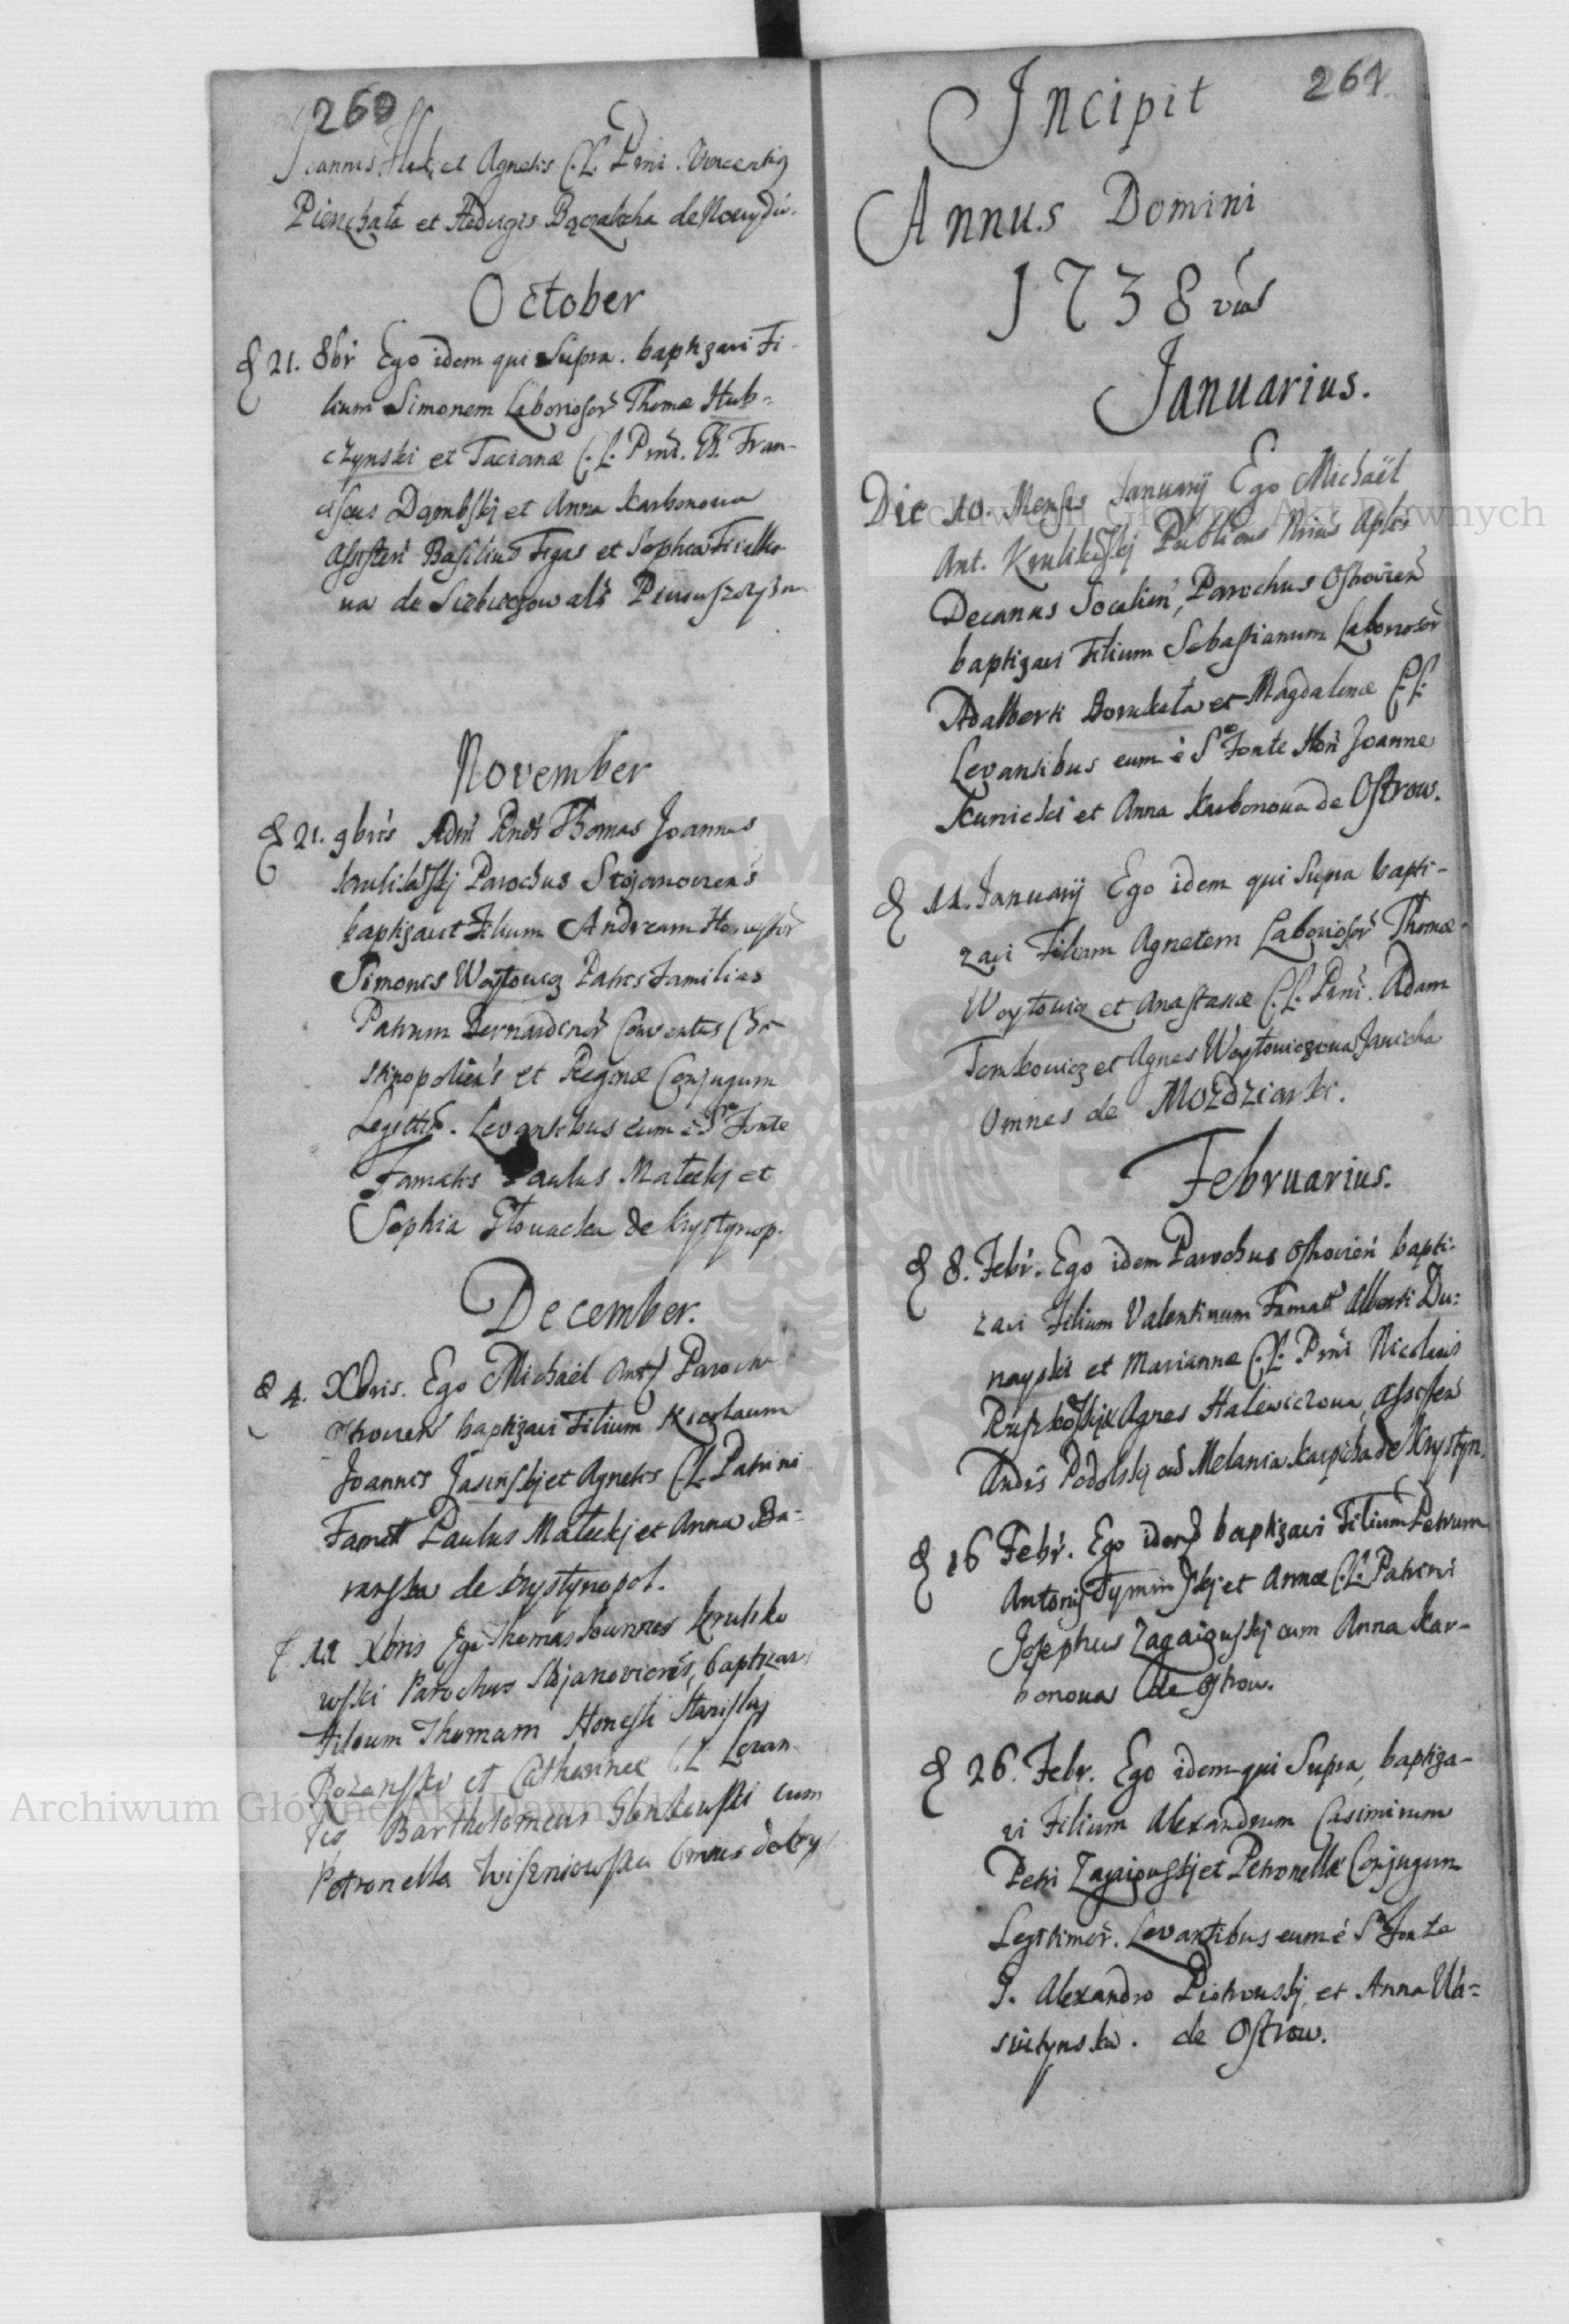 260
Joannis et Agnetis C. L. Prni. Vincentig
Pienchała et Hedvigis de Nowydw.
October
& 21. 8br Ego idem qui Supra. baptizavi Fi-
lium Simonem Laborioson Thomæ Hub-
czynski et Tacianæ C. L. Prni. Fran-
ciscus Dąmbskj et Anna Karbonowa
Assisten Basilius Figas et Sophia
wa de
November
& 21. 9bris Admi Rndo Thomas Joannes
Krulikowskj Parochus Stojanoviens
baptizavit Filium Andream Honestor
Simonis Woytowicz Patris Familias
Patrum Bernardinor Conventus Chr
stinopoliens et Reginæ Conjugum
Legittim. Levantibus eum è Sro Fonte
Famatis Paulus Małeckj et
Sophia Głowacka de Krystynop.
December.
& 4. Xbris. Ego Michaël Ant Paroch
Ostrovien baptizavi Filium Nicolaum
Joannis Jasinskj et Agnetis C. L. Patrini
Famat Paulus Małeckj et Anna Ba-
ranska de Krystynopol.
& 11 Xbris Ego Thomas Joannes Kruliko
wski Parochus Stojanoviens, baptizav
Filium Thomam Honesti Stanislaj
Rozanski et Catharinæ C L Levan
tes Bartholomeus cum
Petronella Wiszniowska omnes de Kry
Archiwum Główne Akt Dawnych
261
Incipit
Annus Domini
1738vus
Januarius.
Die 10. Mensis Januarij Ego Michaël
Ant. Krulikowskj Publicus Nrius Aplis
Decanus Socalien, Parochus Ostrovien
baptizavi Filium Sebastianum Laborioson
Adalberti Borukała et Magdalenæ C. L.
Levantibus eum è Sro Fonte Hon Joanne
Kunicki et Anna Karbonowa de Ostrow.
& 11. Januarij Ego idem qui Supra bapti-
zavi Filiam Agnetem Laborioson Thomæ
Woytowicz et Anastasiæ C. L. Prni. Adam
Tomkowicz et Agnes Woytowiczowa Janicha
Omnes de Mozdziarki.
Februarius.
& 8. Febr. Ego idem Parochus Ostrovien bapti-
zavi Filium Valentinum Famat Alberti Du-
nayski et Mariannæ C. L. Prni Nicolaus
Agnes Halewiczowa, Assisten
Andrs Podolskj cum Melania Karpicha de Krystyn.
& 16 Febr. Ego idem baptizavi Filium Petrum
Antonij Tyminskj et Annæ C. L. Patrini
Josephus Zagaiowskj cum Anna Kar-
bonowa de Ostrow.
& 26. Febr. Ego idem qui Supra, baptiza-
vi Filium Alexandrum Casimirum
Petri Zagaiowskj et Petronellæ Conjugum
Legitimor. Levantibus eum è Sro Fonte
G. Alexandro Piotrowskj, et Anna Wa-
siutynska. de Ostrow.
Archiwum Główne Akt Dawnych